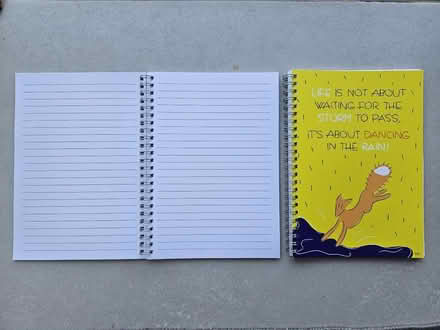 LIFE IS NOT ABOUT
WAITING FOR THE
STORM TO PASS,
IT'S ABOUT DANCING
IN THE RAIN!